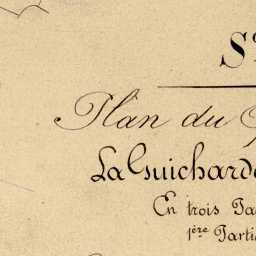 Plan du
La Guichard
En trois
1ère Parti